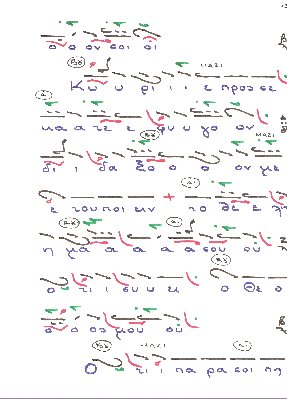 ο ο ον σοι οι
ΜΑΖΙ
Κυ υ ρι ι ι ε προσε
κα α τε ε φυ υ γο ον
ΜΑΖΙ
δι ι δα ξο ο ο ον με
ε του ποι ειν το θε ε λη
η μα α α α α σου ου
ο τι ι συ υ ει ο Θε ο
ο ο ος μου ου
ΜΑΖΙ
Ο τι ι πα ρα σοι πη